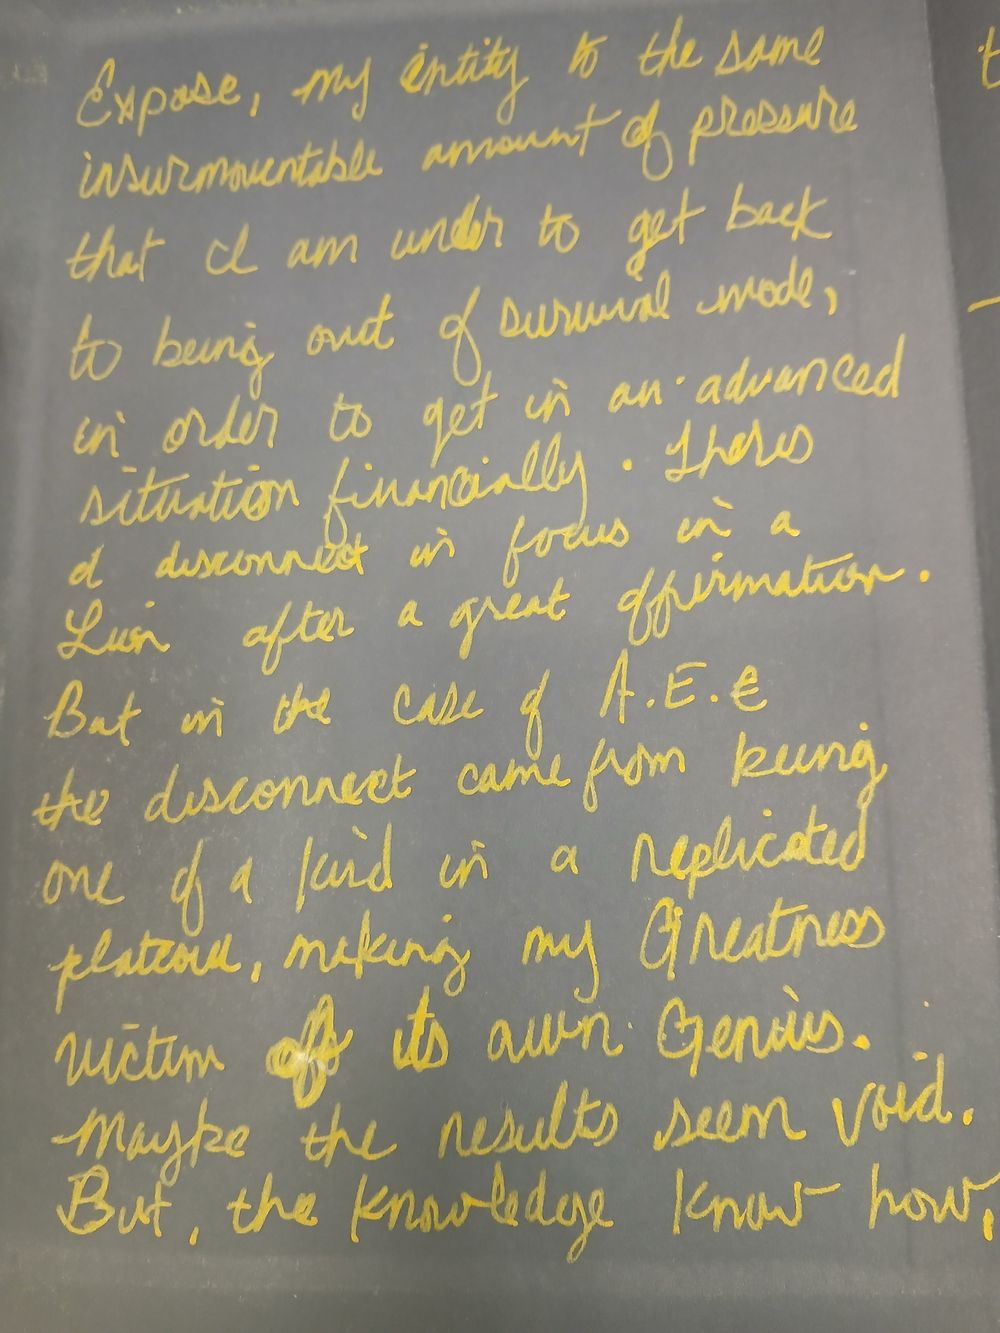 Expose, my entity to the same
insurmountable amount of pressure
that I am under to get back
to being out of survival mode,
in order to get in an advanced
situation financially. Theres
a disconnect in focus in a
Lion after a great affirmation.
But in the case of A.E.E
the disconnect came from being
one of a kind in a replicated
plateau, making my Greatness
victim of its own Genius.
Maybe the results seem void.
But, the knowledge know how,